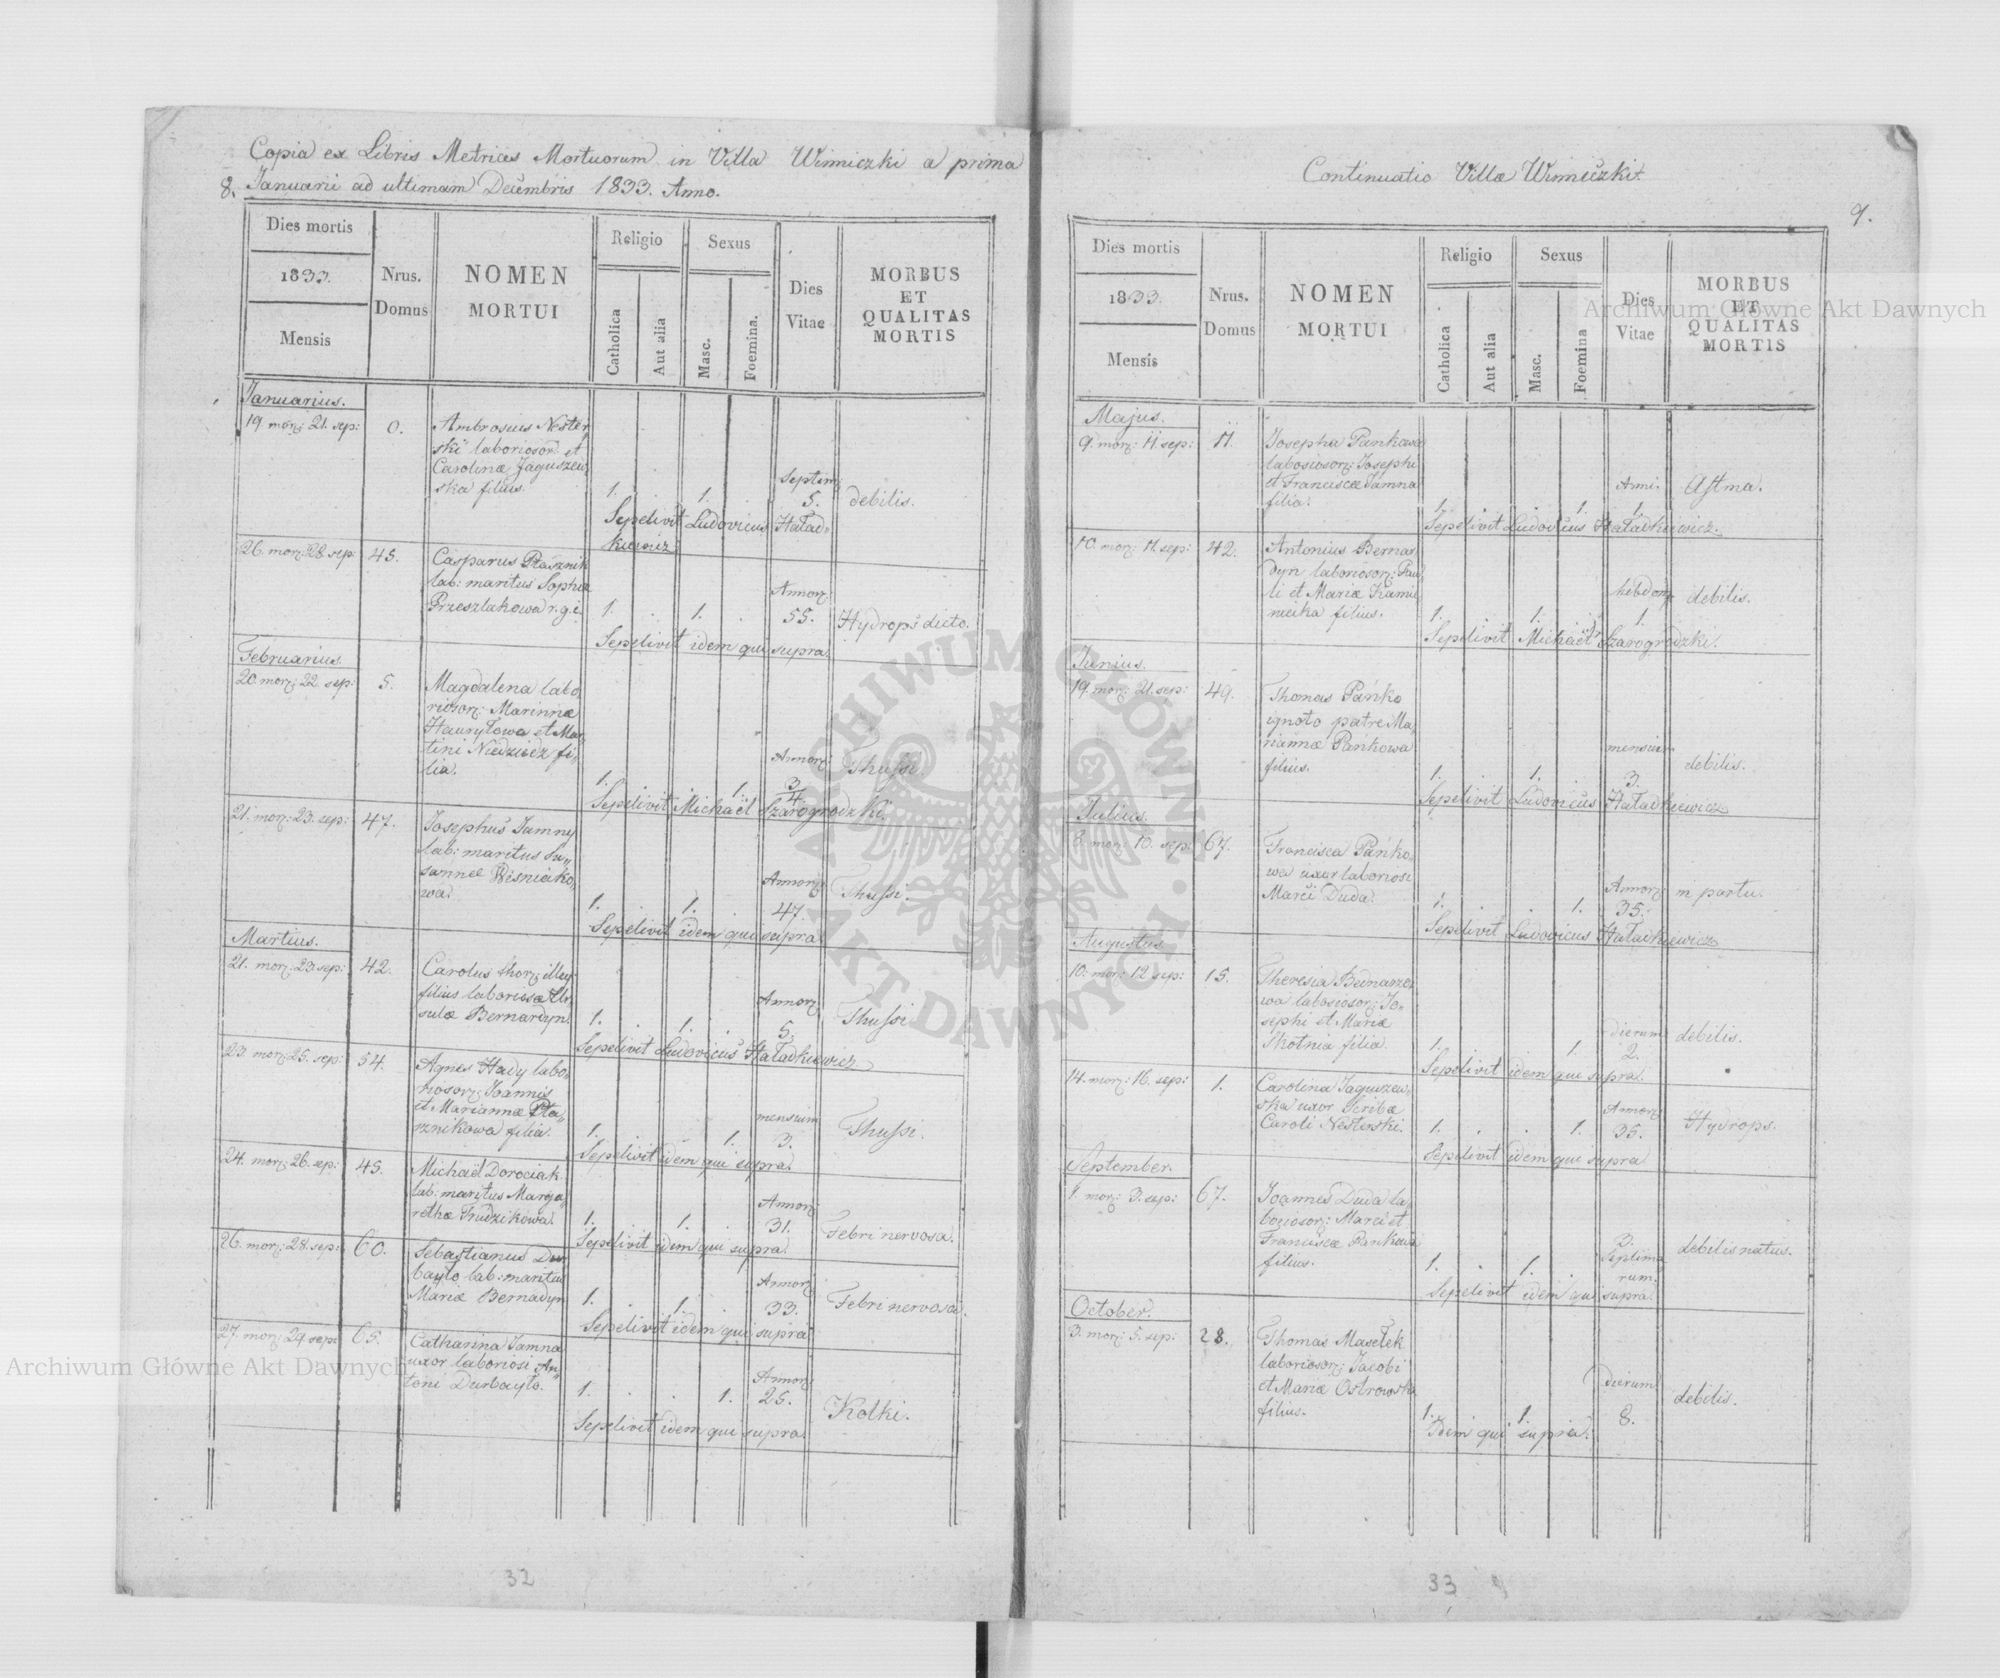 Copia ex Libris Metrices Mortuorum in Villa Winniczki a prima
8. Januarii ad ultimam Decembris 1833. Anno.
Dies mortis
1833.
Mensis
Nrus.
Domus
NOMEN
MORTUI
Religio
Catholica
Aut alia
Sexus
Masc.
Foemina.
Dies
Vitae
MORBUS
ET
QUALITAS
MORTIS
Januarius.
19. mor: 21. sep:
0.
Ambrosius Nester
ski laborioso et
Carolinæ Jaguszew
ska filius.
1. . 1. .
Septim
5.
debilis.
Sepelivit Ludovicus Hatad-
kiewicz
26. mor: 28. sep:
45.
Casparus Ptasznik
lab: maritus Sophiæ
Przeszlakowa r.g.c.
1. . 1. .
Annor
55.
Hydrops dicto.
Sepelivit idem qui supra.
Februarius.
20. mor: 22. sep:
5.
Magdalena labo
riosor: Marinnæ
Hauryłowa et Mar
tini Niedzwiedz fi-
lia.
1. . . 1.
Annor
3/4
Thussi.
Sepelivit Michaël Szarogrodzki.
21. mor: 23. sep:
47.
Josephus Jamny
lab: maritus Su-
sannæ Wisniako-
wa.
1. . 1. .
Annor
47.
Thussi.
Sepelivit idem qui supra
Martius.
21. mor: 23 sep:
42.
Carolus thor: illeg:
filius laboriosæ Ur
sulæ Bernardyn.
1. . 1. .
Annor
5.
Thussi
Sepelivit Ludovicus Hatadkiewicz.
23. mor: 25. sep:
54.
Agnes Hady labo-
riosor: Joannis
et Mariannæ Pta-
sznikowa filia.
1. . . 1.
mensium
3.
Thussi.
Sepelivit idem qui supra.
24. mor: 26. sep:
45.
Michaël Dorociak
lab: maritus Marga
rethæ Trudzikowa.
1. . 1. .
Annor
31.
Febri nervosa.
Sepelivit idem qui supra.
26. mor: 28. sep:
60.
Sebastianus Dur
bayło lab: maritus
Mariæ Bernadyn
1. . 1. .
Annor
33.
Febri nervosa.
Sepelivit idem qui supra
27. mor: 29. sep:
65.
Catharina Jamna
uxor laboriosi An-
toni Durbayło.
1. . . 1.
Annor
25.
Kolki.
Sepelivit idem qui supra.
32
Continuatio Villæ Winniczki.
9.
Dies mortis
1833.
Mensis
Nrus.
Domus
NOMEN
MORTUI
Religio
Catholica
Aut alia
Sexus
Masc.
Foemina
Dies
Vitae
MORBUS
ET
QUALITAS
MORTIS
Majus.
9. mor: 11. sep:
11.
Josepha Pankowa
laboriosor: Josephi
et Franciscæ Jamna
filia.
1. . . 1.
Anni.
1.
Astma.
Sepelivit Ludovicus Hatadkiewicz.
10. mor: 11. sep:
42.
Antonius Bernar
dyn laboriosor: Pau
li et Mariæ Kamie
niecka filius.
1. . 1. .
hebdom
1.
debilis.
Sepelivit Michaël Szarogrodzki.
Junius.
19. mor: 21. sep:
49.
Thomas Pańko
ignoto patre Ma
riannæ Pańkowa
filius.
1. . 1. .
mensium
3.
debilis.
Sepelivit Ludovicus Hatadkiewicz
Julius.
8. mor: 10. sep:
67.
Francisca Pańko-
wa uxor laboriosi
Marci Duda.
1. . . 1.
Annor
35.
in partu.
Sepelivit Ludovicus Hatadkiewicz
Augustus.
10. mor: 12 sep:
15.
Theresia Bednarzo
wa laboriosor: Jo-
sephi et Mariæ
Skotnia filia.
1. . . 1.
dierum
2.
debilis.
Sepelivit idem qui supra.
14. mor: 16. sep:
1.
Carolina Jaguszew-
ska uxor Scribæ
Caroli Nesterski.
1. . . 1.
Annor
35.
Hydrops.
Sepelivit idem qui supra
September.
1. mor: 3. sep:
67.
Joannes Duda la-
boriosor: Marci et
Franciscæ Pankowa
filius.
1. . 1. .
2.
Septima
rum:
debilis natus.
Sepelivit idem qui supra.
October.
3. mor: 5. sep:
28.
Thomas Masełek
laboriosor: Jacobi
et Mariæ Ostrowska
filius.
1. . 1. .
dierum
8.
debilis.
Idem qui supra.
33
Archiwum Główne Akt Dawnych
Archiwum Główne Akt Dawnych
ARCHIWUM GŁÓWNE
AKT DAWNYCH